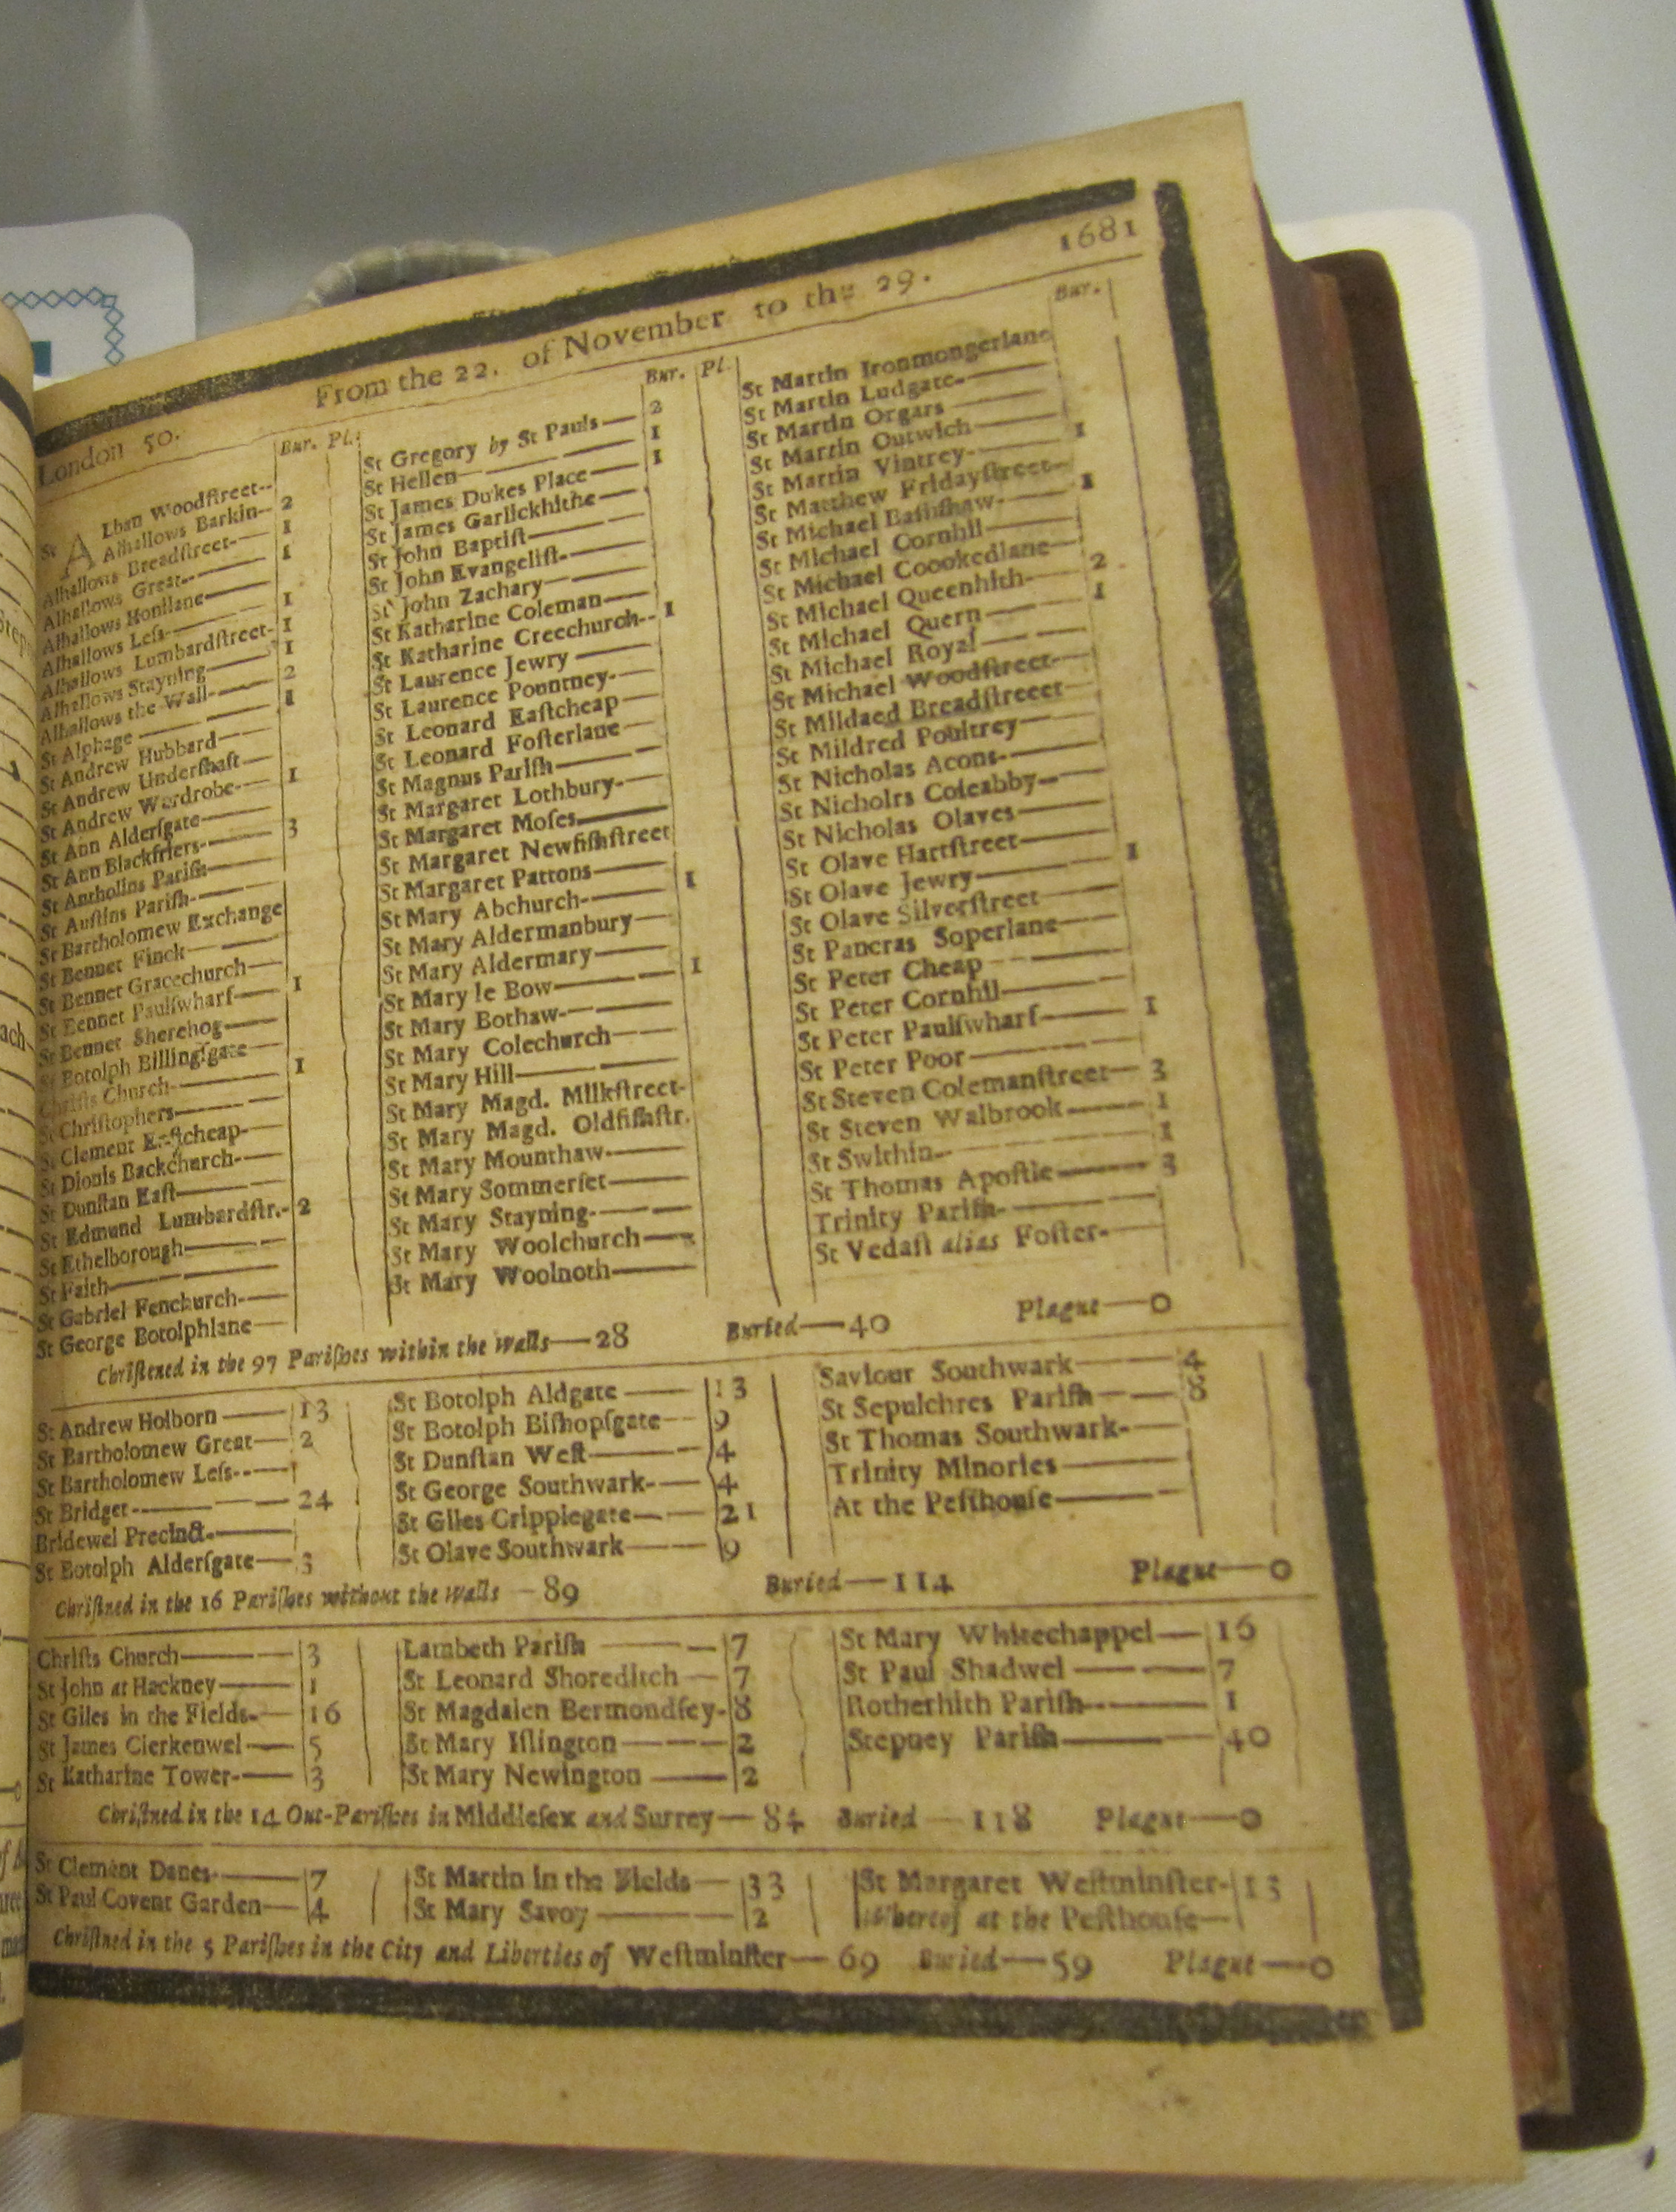 From the 22. of November to the 29. 1681
London 50.
Bur. Pl.
St Alban Woodſtreet--
Alhallows Barkin-- 2
Alhallows Breadſtreet-- 1
Alhallows Great-- 1
Alhallows Honilane—
Alhallows Leſs— 1
Alhallows Lumbardſtreet- 1
Alhallows Stayning— 1
Alhallows the Wall— 2
St Alphage — 1
St Andrew Hubbard —
St Andrew Underſhaft —
St Andrew Wardrobe— 1
St Ann Alderſgate—
St Ann Blackfriers— 3
St Antholins Pariſh—
St Auſtins Pariſh—
St Bartholomew Exchange
St Bennet Finck—
St Bennet Gracechurch—
St Bennet Paulſwharf— 1
St Bennet Sherehog—
St Botolph Billingſgate—
Chriſts Church— 1
St Chriſtophers—
St Clement Eaſtcheap—
St Dionis Backchurch—
St Dunſtan Eaſt—
St Edmund Lumbardſtr.- 2
St Ethelborough—
St Faith—
St Gabriel Fenchurch—
St George Botolphlane—
Bur. Pl.
St Gregory by St Pauls— 2
St Hellen— 1
St James Dukes Place— 1
St James Garlickhithe—
St John Baptiſt—
St John Evangeliſt—
St John Zachary—
St Katharine Coleman—
St Katharine Creechurch-- 1
St Laurence Jewry —
St Laurence Pountney—
St Leonard Eaſtcheap—
St Leonard Foſterlane—
St Magnus Pariſh—
St Margaret Lothbury—
St Margaret Moſes—
St Margaret Newfiſhſtreet
St Margaret Pattons—
St Mary Abchurch- 1
St Mary Aldermanbury—
St Mary Aldermary—
St Mary le Bow— 1
St Mary Bothaw—
St Mary Colechurch—
St Mary Hill—
St Mary Magd. Milkſtreet-
St Mary Magd. Oldfiſhſtr.
St Mary Mounthaw—
St Mary Sommerſet—
St Mary Stayning—
St Mary Woolchurch—
St Mary Woolnoth—
Bur.
St Martin Ironmongerlane
St Martin Ludgate—
St Martin Orgars
St Martin Outwich—
St Martin Vintrey— 1
St Matthew Fridayſtreet—
St Michael Baſſiſhaw— 1
St Michael Cornhil—
St Michael Coookedlane—
St Michael Queenhith— 2
St Michael Quern— 1
St Michael Royal—
St Michael Woodſtreet—
St Mildaed Breadſtreeet—
St Mildred Poultrey—
St Nicholas Acons—
St Nicholrs Coleabby—
St Nicholas Olaves—
St Olave Hartſtreet—
St Olave Jewry— 1
St Olave Silverſtreet—
St Pancras Soperlane—
St Peter Cheap —
St Peter Cornhil—
St Peter Paulſwharf— 1
St Peter Poor—
St Steven Colemanſtreet— 3
St Steven Walbrook— 1
St Swithin— 1
St Thomas Apoſtle— 3
Trinity Pariſh—
St Vedaſt alias Foſter-
Chriſtened in the 97 Pariſhes within the Walls—28 Buried—40 Plague—0
St Andrew Holborn — 13
St Bartholomew Great— 2
St Bartholomew Leſs--
St Bridget — 24
Bridewel Precinct—
St Botolph Alderſgate— 3
St Botolph Aldgate — 13
St Botolph Biſhopſgate— 9
St Dunſtan Weſt— 4
St George Southwark— 4
St Giles Cripplegate— 21
St Olave Southwark— 9
Saviour Southwark— 4
St Sepulchres Pariſh— 8
St Thomas Southwark-
Trinity Minories —
At the Peſthouſe—
Chriſtned in the 16 Pariſhes without the Walls — 89 Buried—114 Plague—0
Chriſts Church— 3
St John at Hackney— 1
St Giles in the Fields— 16
St James Clerkenwel— 5
St Katharine Tower— 3
Lambeth Pariſh — 7
St Leonard Shoreditch — 7
St Magdalen Bermondſey- 8
St Mary Iſlington— 2
St Mary Newington — 2
St Mary Whitechappel— 16
St Paul Shadwel — 7
Rotherhith Pariſh— 1
Stepney Pariſh— 40
Chriſtned in the 14 Out-Pariſhes in Middleſex and Surrey— 84 Buried — 118 Plague—0
St Clement Danes— 7
St Paul Covent Garden— 4
St Martin in the Fields— 33
St Mary Savoy — 2
St Margaret Weſtminſter- 13
Whereof at the Peſthouſe—
Chriſtned in the 5 Pariſhes in the City and Liberties of Weſtminſter— 69 Buried—59 Plague—0